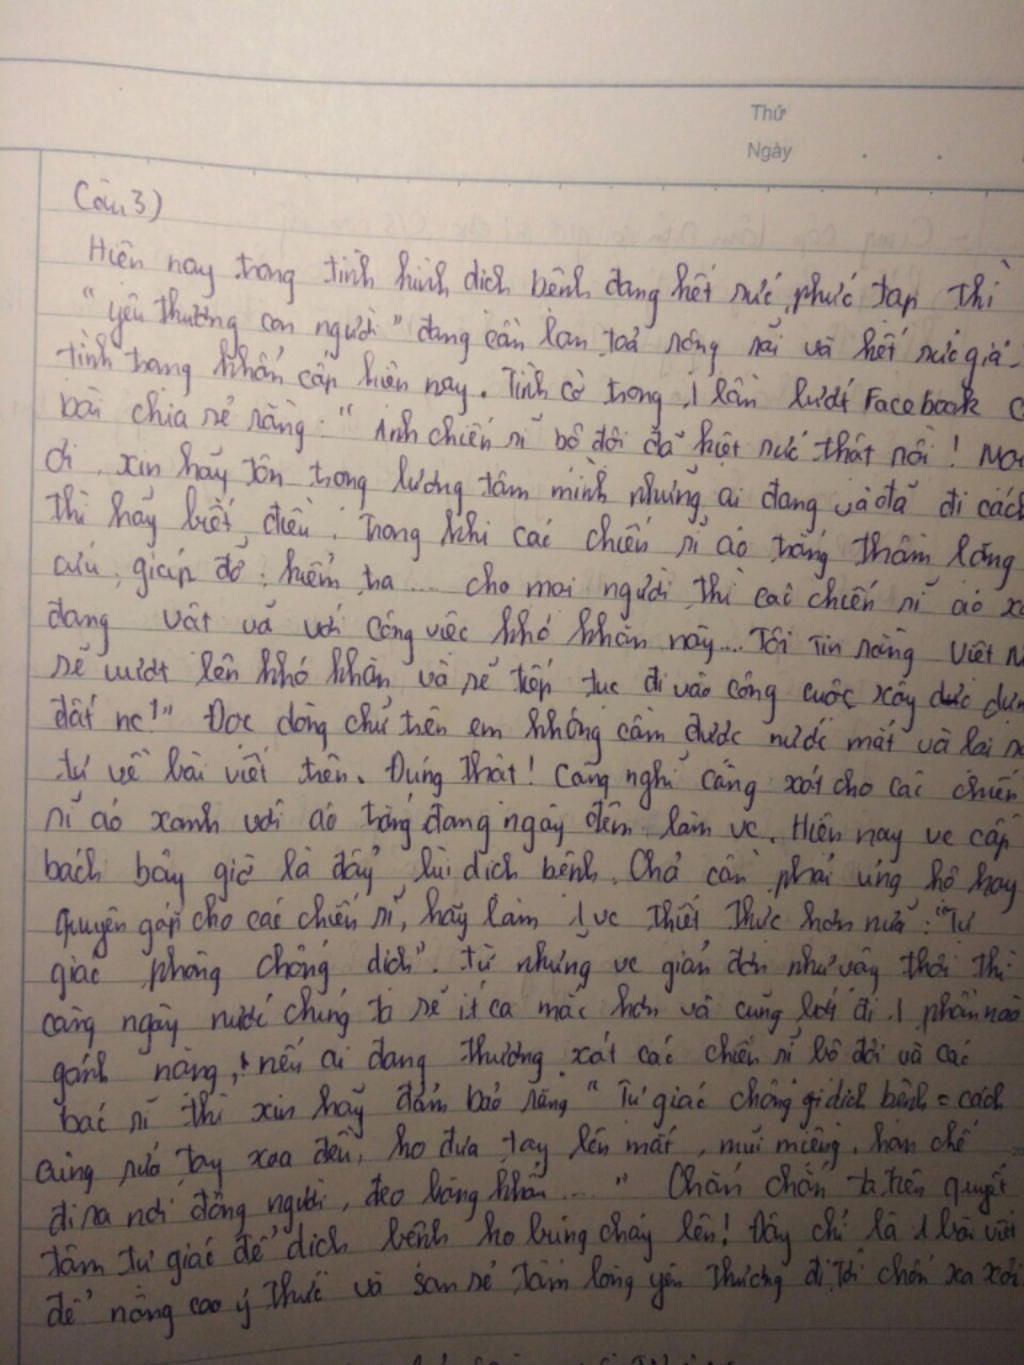 Thứ
Ngày
Câu 3)
Hiện nay trong tình hình dịch bệnh đang hết sức phức tạp thì
"yêu thương con người" đang cần lan toả rộng rãi và hết sức giá
tình trạng khẩn cấp hiện nay. Tình cờ trong 1 lần lướt Facebook
bài chia sẻ rằng: "Anh chiến sĩ bộ đội đã kiệt sức thật rồi!
ơi, xin hãy tôn trọng lương tâm mình những ai đang và đã đi cách
thì hãy biết điều. Trong khi các chiến sĩ áo trắng thầm lặng
cứu, giúp đỡ, kiểm tra ... cho mọi người thì các chiến sĩ áo
đang vật vã với công việc khó khăn này... Tôi tin rằng Việt
sẽ vượt lên khó khăn và sẽ tiếp tục đi vào công cuộc xây dựng
đất nc!" Đọc dòng chữ trên em không cầm được nước mắt và lại
tư về bài viết trên. Đúng thật! Càng nghĩ càng xót cho các chiến
sĩ áo xanh với áo trắng đang ngày đêm làm vc. Hiện nay vc cấp
bách bây giờ là đẩy lùi dịch bệnh. Chả cần phải ủng hộ hay
quyên góp cho các chiến sĩ, hãy làm 1 vc thiết thực hơn nữa: "Tự
giác phòng chống dịch". Từ những vc giản đơn như vậy thôi thì
càng ngày nước chúng ta sẽ ít ca mắc hơn và cũng bớt đi 1 phần nào
gánh nặng, nếu ai đang thương xót các chiến sĩ bộ đội và các
bác sĩ thì xin hãy đảm bảo rằng "Tự giác chống dịch bệnh = cách
cùng rửa tay xoa đều, ho đưa tay lên mắt, mũi miệng, hạn chế
đi ra nơi đông người, đeo băng khẩu ... " Chắc chắn ta trên quyết
tâm tự giác để dịch bệnh ko bùng cháy lên! Đây chỉ là 1 bài viết
để nâng cao ý thức và san sẻ tấm lòng yêu thương đi tới chốn xa xôi